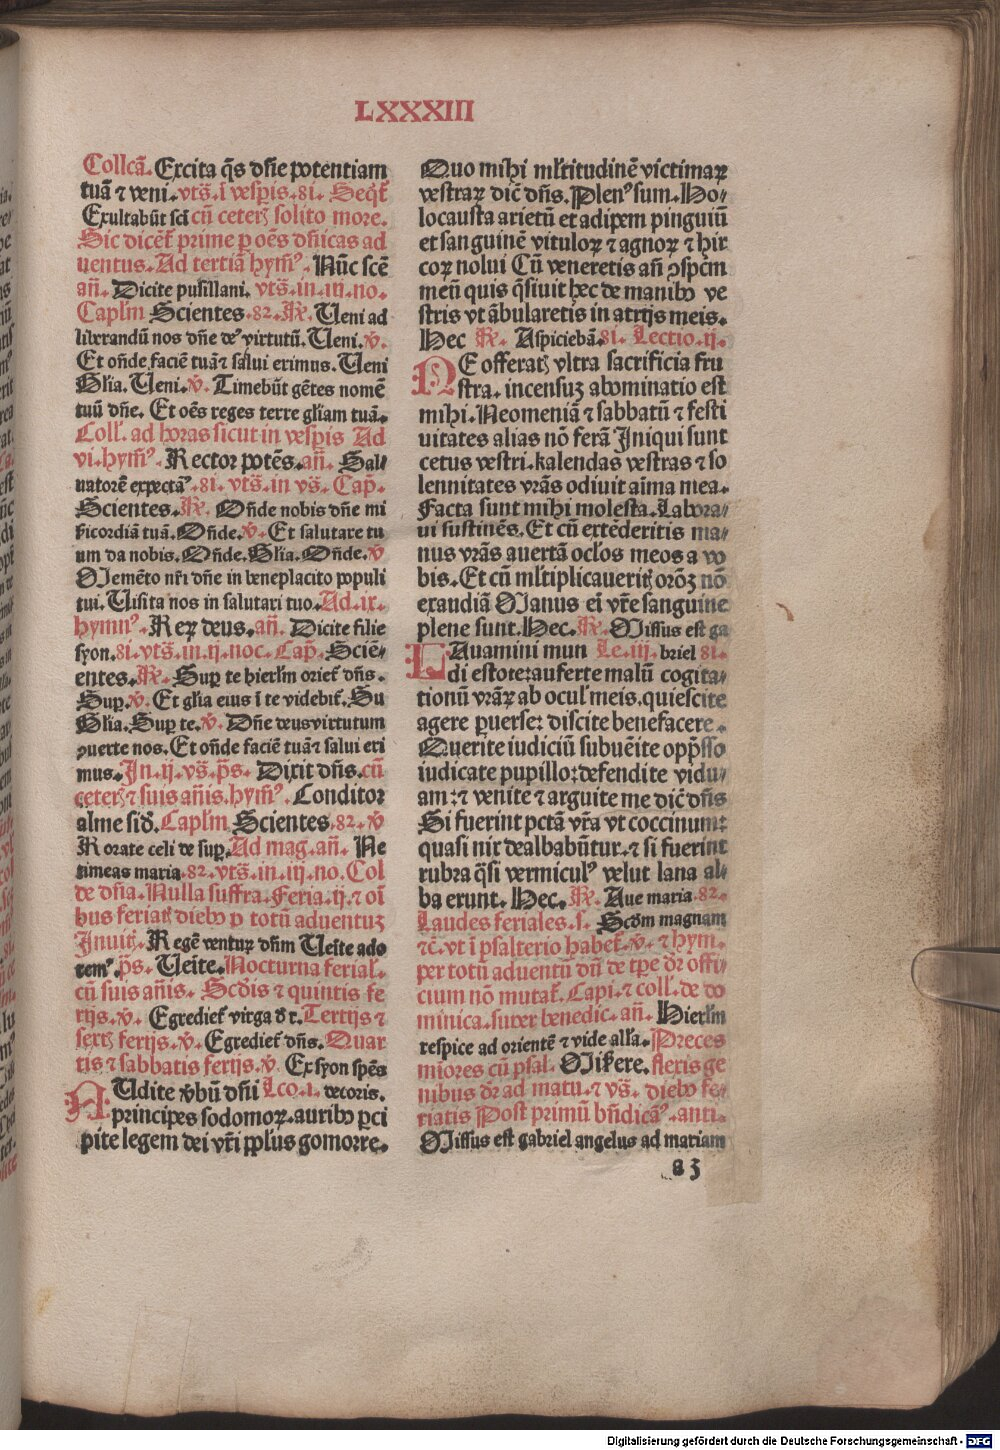 LXXXIII
Collcā. Excita q̄s dn̄e potentiam
tuā ⁊ veni. vts̄. ī vesꝑis. 81. Seqt̄
Exultabūt sci cū ceterꝭ solito more.
Sic dicēt prime ꝑ oēs dn̄icas ad
uentus. Ad tertiā hym̄⁹. Nūc scē
an̄. Dicite pusillani. vts̄. in. iii. no.
Caplm Scientes. 82. ℟. Ueni ad
liberandū nos dn̄e de⁹ virtutū. Ueni. ℣.
Et on̄de faciē tuā ⁊ salui erimus. Ueni
Glia. Ueni. ℣. Timebūt gētes nomē
tuū dn̄e. Et oēs reges terre gliam tuā.
Coll. ad horas sicut in vesꝑis Ad
vi. hym̄⁹. Rector potēs. an̄. Sal⸗
uatorē expectā⁹. 81. vts̄. in vs̄. Cap̄.
Scientes. ℟. On̄de nobis dn̄e mi
sericordiā tuā. On̄de. ℣. Et salutare tu
um da nobis. On̄de. Glia. On̄de. ℣
Memēto nr̄i dn̄e in beneplacito populi
tui. Uisita nos in salutari tuo. Ad. ix.
hymn⁹. Rex deus. an̄. Dicite filie
syon. 81. vts̄. in. ij. noc. Cap̄. Sciē⸗
entes. ℟. Suꝑ te hierl̄m oriet̄ dn̄s.
Suꝑ. ℣. Et glia eius ī te videbit̄. Su
Glia. Suꝑ te. ℣. Dn̄e deus virtutum
ꝯuerte nos. Et on̄de faciē tuā ⁊ salui eri
mus. In. ij. vs̄. p̄s. Dixit dn̄s. cū
ceterꝭ ⁊ suis an̄is. hym̄⁹. Conditor
alme sid̄. Caplm Scientes. 82. ℣
Rorate celi de suꝑ. Ad mag. an̄. Ne
timeas maria. 82. vts̄. in. iij. no. Col
de dn̄ia. Nulla suffra. Feria. ij. ⁊ oī
bus feriatꝭ dieb⁹ ꝑ totū aduentuꝫ
Inuit̄. Regē venturꝝ dn̄m Ueīte ado
rem⁹. p̄s. Ueīte. Nocturna ferial̄.
cū suis an̄is. Scd̄is ⁊ quintis fe
rijs. ℣. Egrediet̄ virga d̄ r. Tertijs ⁊
sextꝭ ferijs. ℣. Egrediet̄ dn̄s. Quar
tis ⁊ sabbatis ferijs. ℣. Ex syon spēs
AUdite v̄bū dn̄i Lco. 1. decoris.
principes sodomoꝝ. aurib⁹ ꝑci
pite legem dei vr̄i ꝓplus gomorre.
Quo mihi ml̄titudinē victimaꝝ
vestraꝝ dic̄ dn̄s. Plen⁹ sum. Ho⸗
locausta arietū et adipem pinguiū
et sanguinē vituloꝝ ⁊ agnoꝝ ⁊ hir
coꝝ nolui Cū veneretis an̄ ꝯspc̄m
meū quis q̄siuit hec de manib⁹ ve
stris vt ābularetis in atrijs meis.
Hec ℟. Aspiciebā. 81. Lectio. ij.
NE offeratꝭ vltra sacrificia fru
stra. incensuꝫ abominatio est
mihi. Neomeniā ⁊ sabbatū ⁊ festi
uitates alias nō ferā Iniqui sunt
cetus vestri. kalendas vestras ⁊ so
lennitates vrās odiuit aīma mea.
Facta sunt mihi molesta. Labora⸗
ui sustinēs. Et cū extēderitis ma⸗
nus vrās auertā ocl̄os meos a vo
bis. Et cū ml̄tiplicaueritꝭ orōꝫ nō
exaudiā Manus ei̅ vr̄e sanguine
plene sunt. Hec. ℟. Missus est ga
LAuamini mun Le. iij. briel 81.
di estote: auferte malū cogita⸗
tionū vrāꝝ ab ocul̄ meis. quiescite
agere ꝑuerse: discite benefacere.
Querite iudiciū subuēite opp̄sso
iudicate pupillo: defendite vidu⸗
am: ⁊ venite ⁊ arguite me dic̄ dn̄s
Si fuerint pctā vr̄a vt coccinum:
quasi nix dealbabūtur. ⁊ si fuerint
rubra q̄si vermicul⁹ velut lana al⸗
ba erunt. Hec. ℟. Aue maria. 82.
Laudes feriales. s. Scd̄m magnam
⁊c̄. vt ī psalterio habet̄. ℣. ⁊ hym.
per totū aduentū dn̄ de tꝑe dr̄ offi⸗
cium nō mutat̄. Capi. ⁊ coll̄. de do
minica. super benedic. an̄. Hierl̄m
respice ad orientē ⁊ vide all̄a. Preces
miōres cū psal. Miserere. flexis ge
nibus dr̄ ad matu. ⁊ vs̄. dieb⁹ fe⸗
riatis Post primū bn̄dicā⁹. anti.
Missus est gabriel angelus ad mariam
a 3
Digitalisierung gefördert durch die Deutsche Forschungsgemeinschaft - DFG